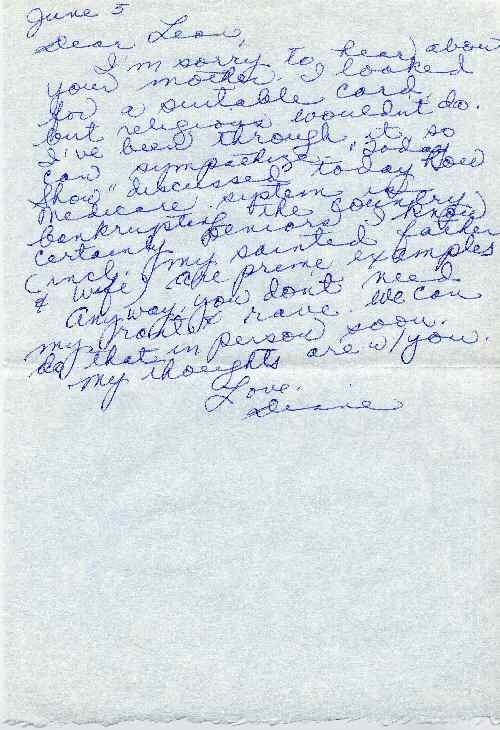 June 5
Dear Leon,
I'm sorry to hear about
your mother. I looked
for a suitable card,
but religious wouldn't do.
I've been through it, so
can sympathize. "Today
Show" discussed today how
Medicare system is
bankrupting the country.
Certainly seniors I know
(incl. my sainted father
& wife) are prime examples
Anyway, you don't need
my rant & rave. We can
do that in person soon.
My thoughts are w/you.
Love,
Diane